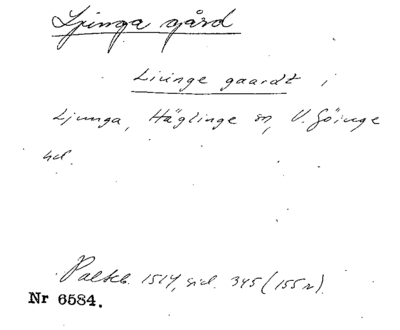 Ljunga gård
Liunge gaardt i
Ljunga, Häglinge sn, V. Göinge
hd.
Palteb. 1514, sid. 345 (155 r).
Nr 6584.